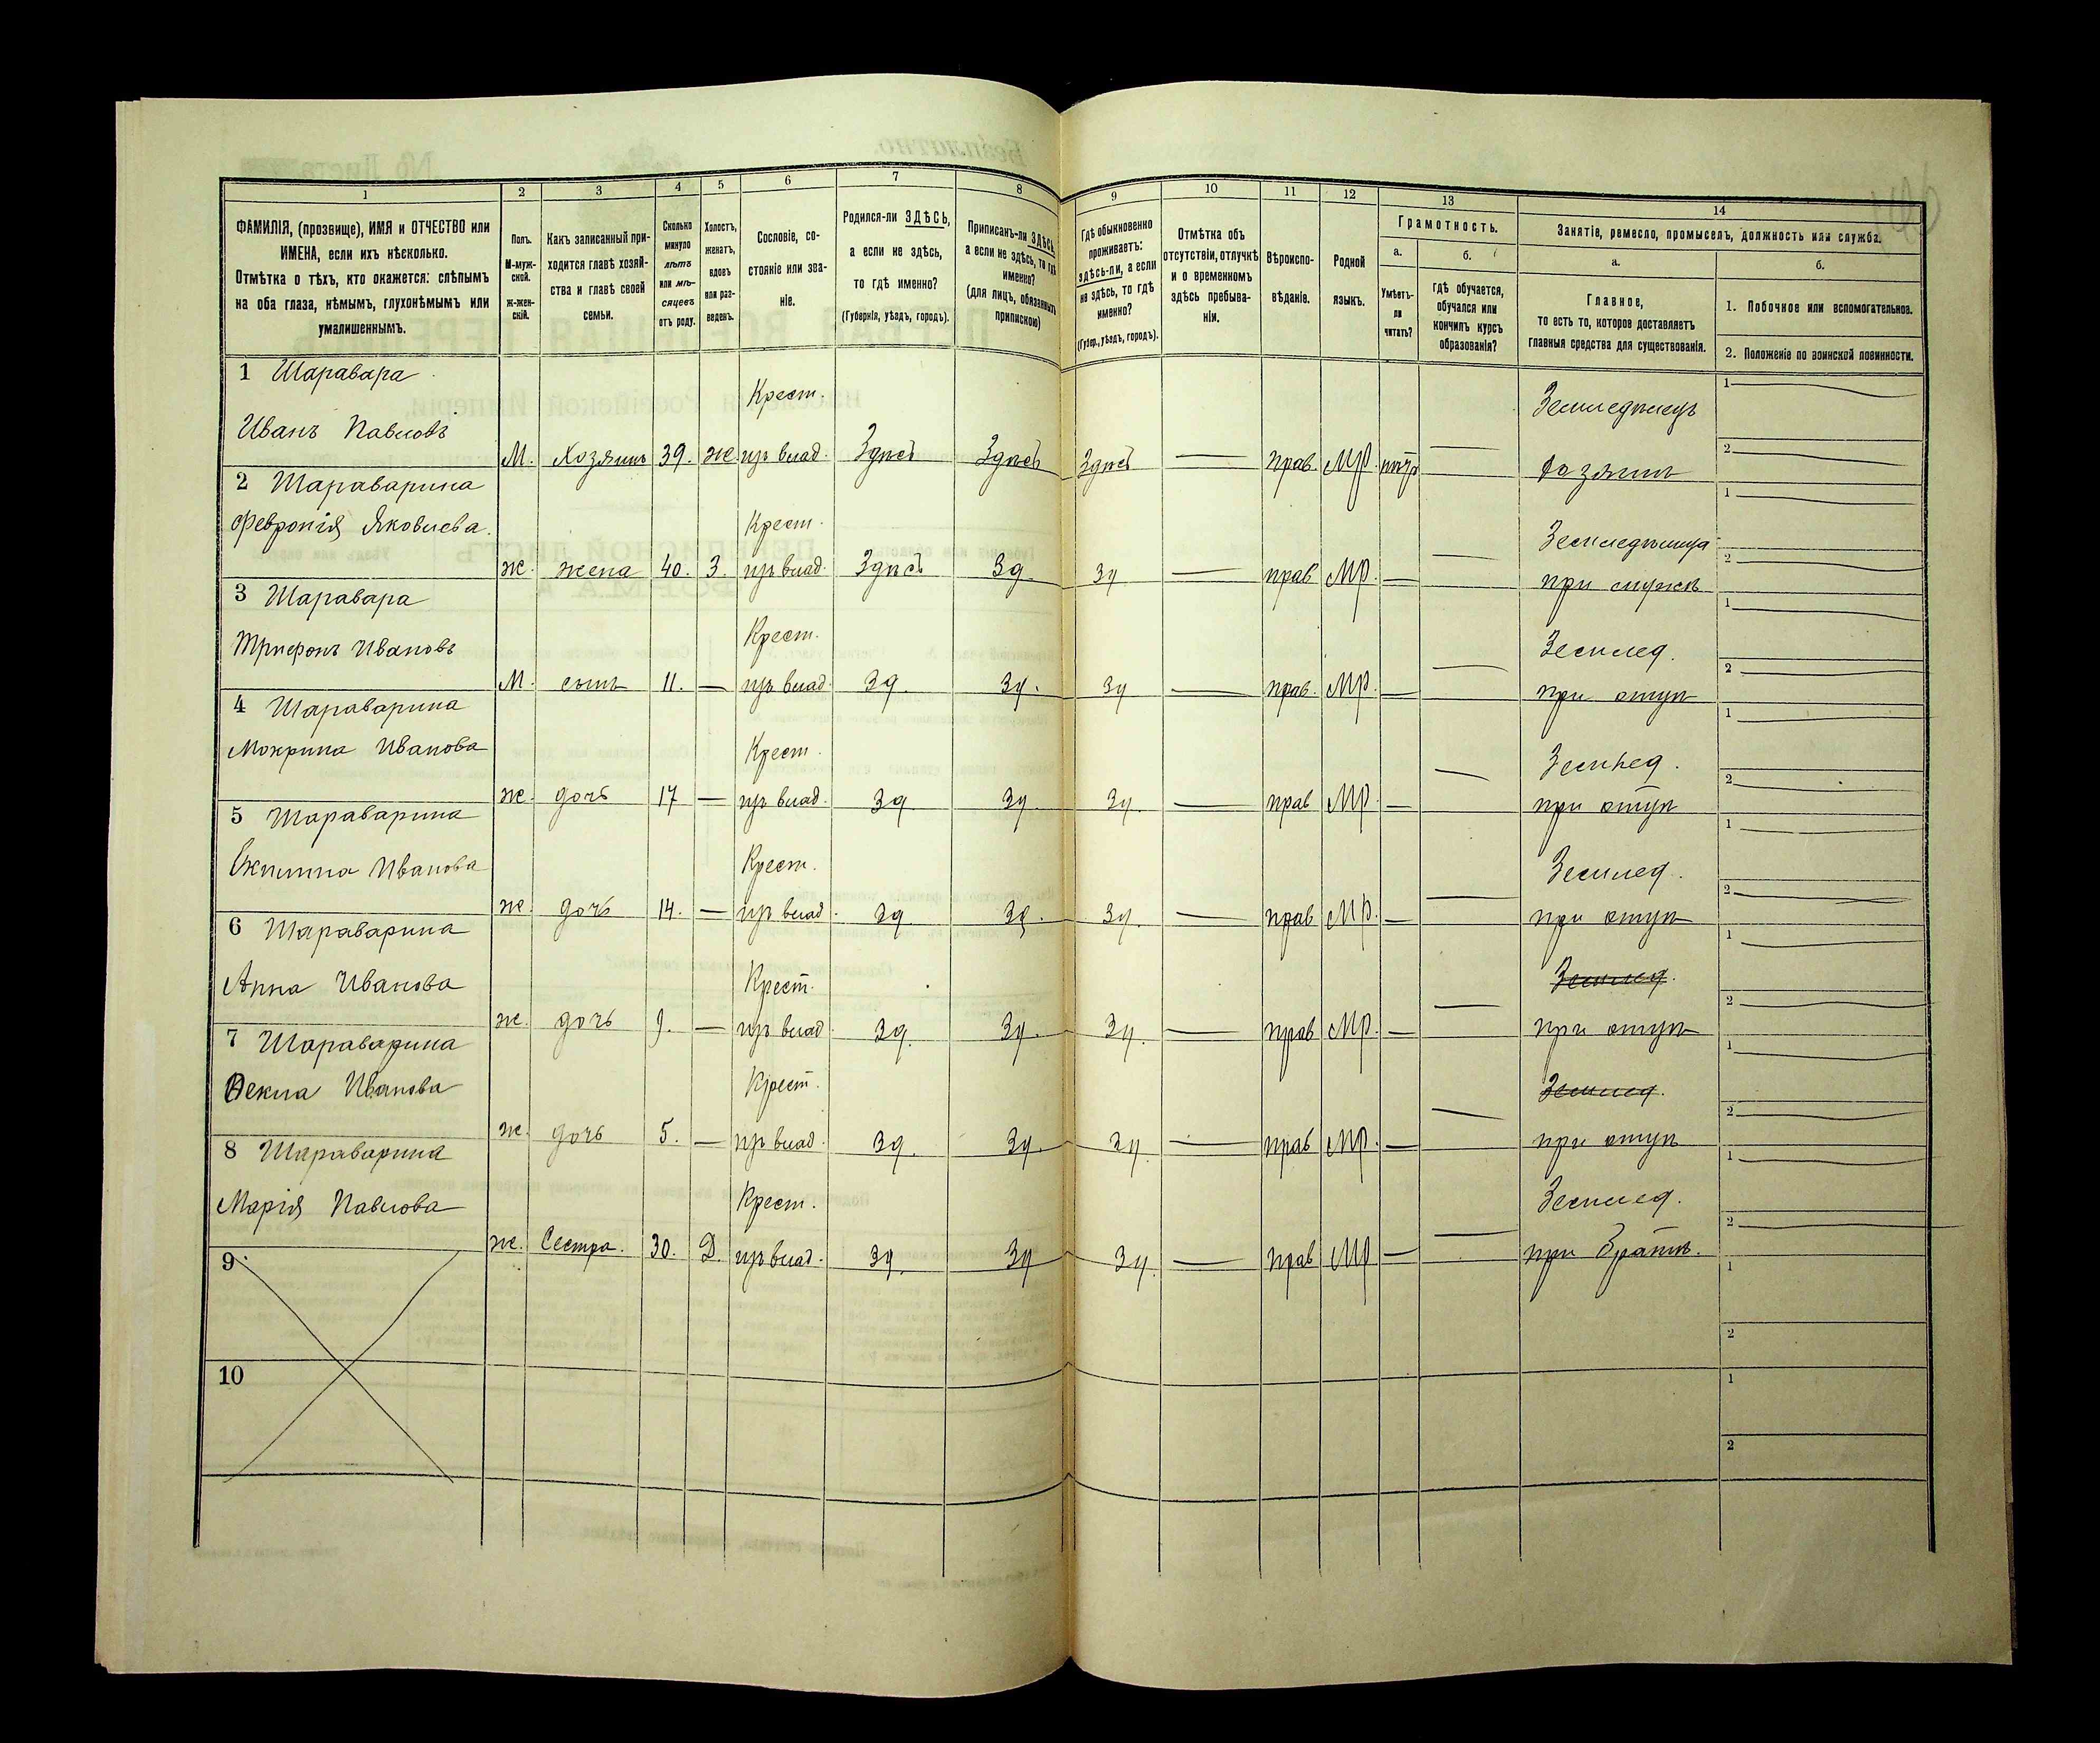 1 2 3 4 5 6 7 8 9 10 11 12 13 14
ФАМИЛІЯ, (прозвище), ИМЯ и ОТЧЕСТВО или
ИМЕНА, если ихъ нѣсколько.
Отмѣтка о тѣхъ, кто окажется: слѣпымъ
на оба глаза, нѣмымъ, глухонѣмымъ или
умалишеннымъ.
Полъ.
М-муж-
ской.
Ж-жен-
скій.
Какъ записанный при-
ходится главѣ хозяй-
ства и главѣ своей
семьи.
Сколько
минуло
лѣтъ
или мѣ-
сяцевъ
отъ роду.
Холостъ,
женатъ,
вдовъ
или раз-
веденъ.
Сословіе, со-
стояніе или зва-
ніе.
Родился-ли ЗДѢСЬ,
а если не здѣсь,
то гдѣ именно?
(Губернія, уѣздъ, городъ).
Приписанъ-ли ЗДѢСЬ,
а если не здѣсь, то гдѣ
именно?
(для лицъ, обязанныхъ
припискою)
Гдѣ обыкновенно
проживаетъ:
здѣсь-ли, а если
не здѣсь, то гдѣ
именно?
(Губер., уѣздъ, городъ).
Отмѣтка объ
отсутствіи, отлучкѣ
и о временномъ
здѣсь пребыва-
ніи.
Вѣроиспо-
вѣданіе.
Родной
языкъ.
Грамотность.
а.
Умѣетъ-
ли
читать?
б.
Гдѣ обучается,
обучался или
кончилъ курсъ
образованія?
Занятіе, ремесло, промыселъ, должность или служба.
а.
Главное,
то есть то, которое доставляетъ
главныя средства для существованія.
б.
1. Побочное или вспомогательное.
2. Положеніе по воинской повинности.
1 Шаравара
Крест. Земледѣлецъ 1
Иванъ Павловъ
М. Хозяинъ 39. ж. изъ влад. Здѣсь Здѣсь Здѣсь — прав. МР — хозяинъ 2
2 Шараварина 1
Февронія Яковлева Крест. Земледѣлица
ж. жена 40. З. изъ влад. Здѣсь Зд. Зд — прав МР. — — при мужѣ 2
3 Шаравара 1
Трифонъ Ивановъ Крест. Землед.
М. сынъ 11. — изъ влад. Зд. Зд. Зд — прав. МР. — — при отцѣ 2
4 Шараварина 1
Мокрина Иванова Крест. Землед.
ж. дочь 17 — изъ влад. Зд. Зд. Зд. — прав МР. — — при отцѣ 2
5 Шараварина 1
Екилина Иванова Крест. Землед.
ж. дочь 14. — изъ влад. Зд. Зд. Зд. — прав МР. — — при отцѣ 2
6 Шараварина 1
Анна Иванова Крест. Землед.
ж. дочь 9. — изъ влад. Зд. Зд. Зд. — прав МР. — — при отцѣ 2
7 Шараварина 1
Ѳекла Иванова Крест. Землед.
ж. дочь 5. — изъ влад. Зд. Зд. Зд. — прав МР. — — при отцѣ 2
8 Шараварина 1
Марія Павлова Крест. Землед.
ж. Сестра. 30. Д. изъ влад. Зд. Зд Зд. — прав МР — — при братѣ. 2
9 1
2
10 1
2